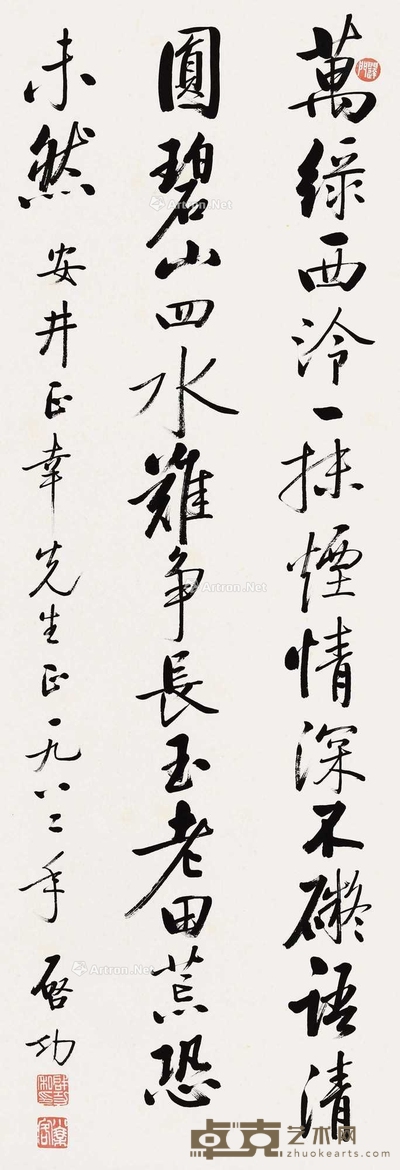 萬綠西泠一抹煙情深不礙語清
圓碧山四水難爭長玉老田荒恐
未然 安井正幸先生正一九八二年 啓功
Artron.Net
Artron.Net
Artron.Net
Artron.Net
卓克艺术网
zhuokearts.com